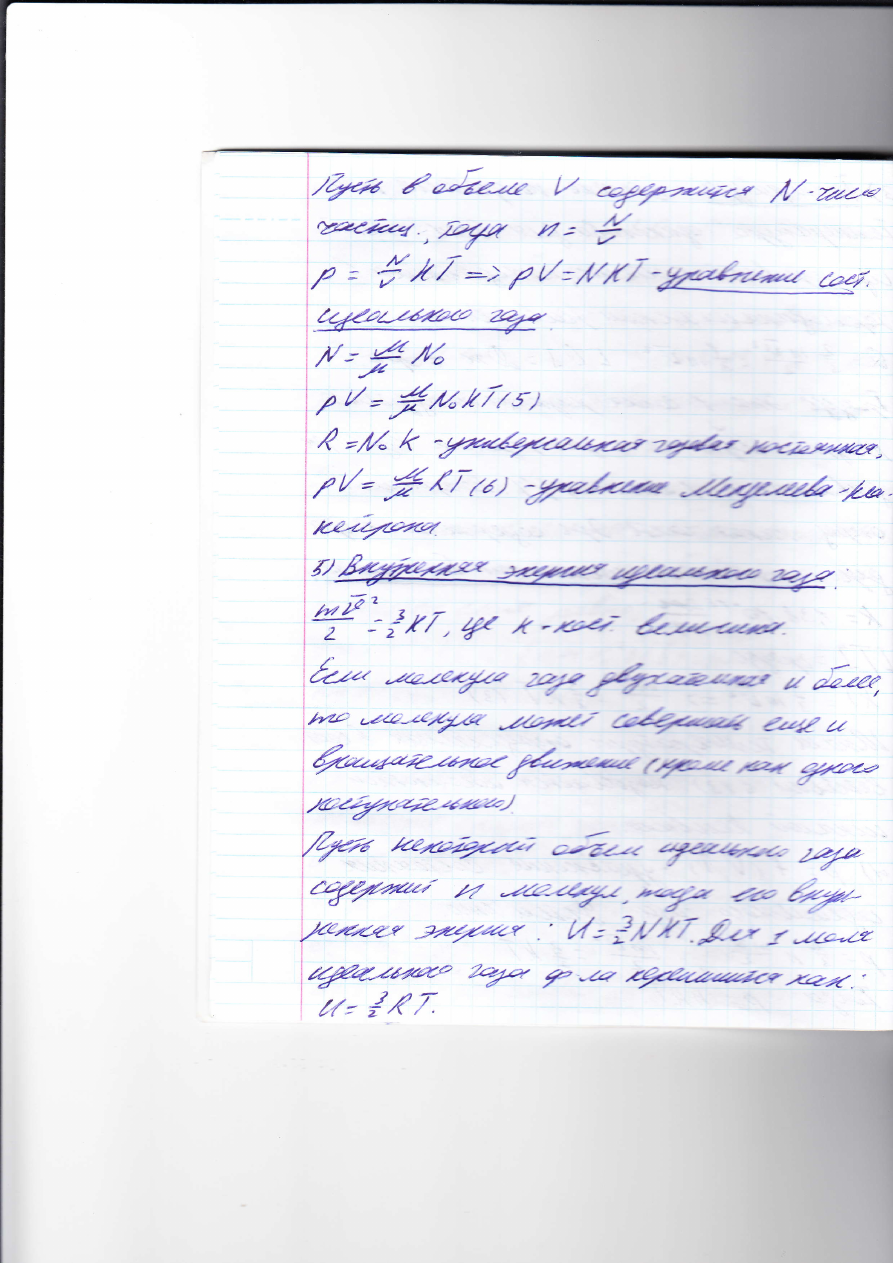 Пусть в объеме V содержится N - число
частиц, тогда n = N/V
p = N/V KT => pV = NKT - уравнение сост.
идеального газа
N = M/μ N₀
pV = M/μ N₀KT (5)
R = N₀ k - универсальная газовая постоянная,
pV = M/μ RT (6) - уравнение Менделеева-Кла-
пейрона.
5) Внутренняя энергия идеального газа:
mv̄²/2 = 3/2 KT, где к - пост. величина.
Если молекула газа двухатомная и более,
то молекула может совершать еще и
вращательное движение (кроме как одного
поступательного).
Пусть некоторый объем идеального газа
содержит N молекул, тогда его внут-
ренняя энергия: U = 3/2 NKT. Для 1 моля
идеального газа ф-ла перепишится как:
U = 3/2 RT.